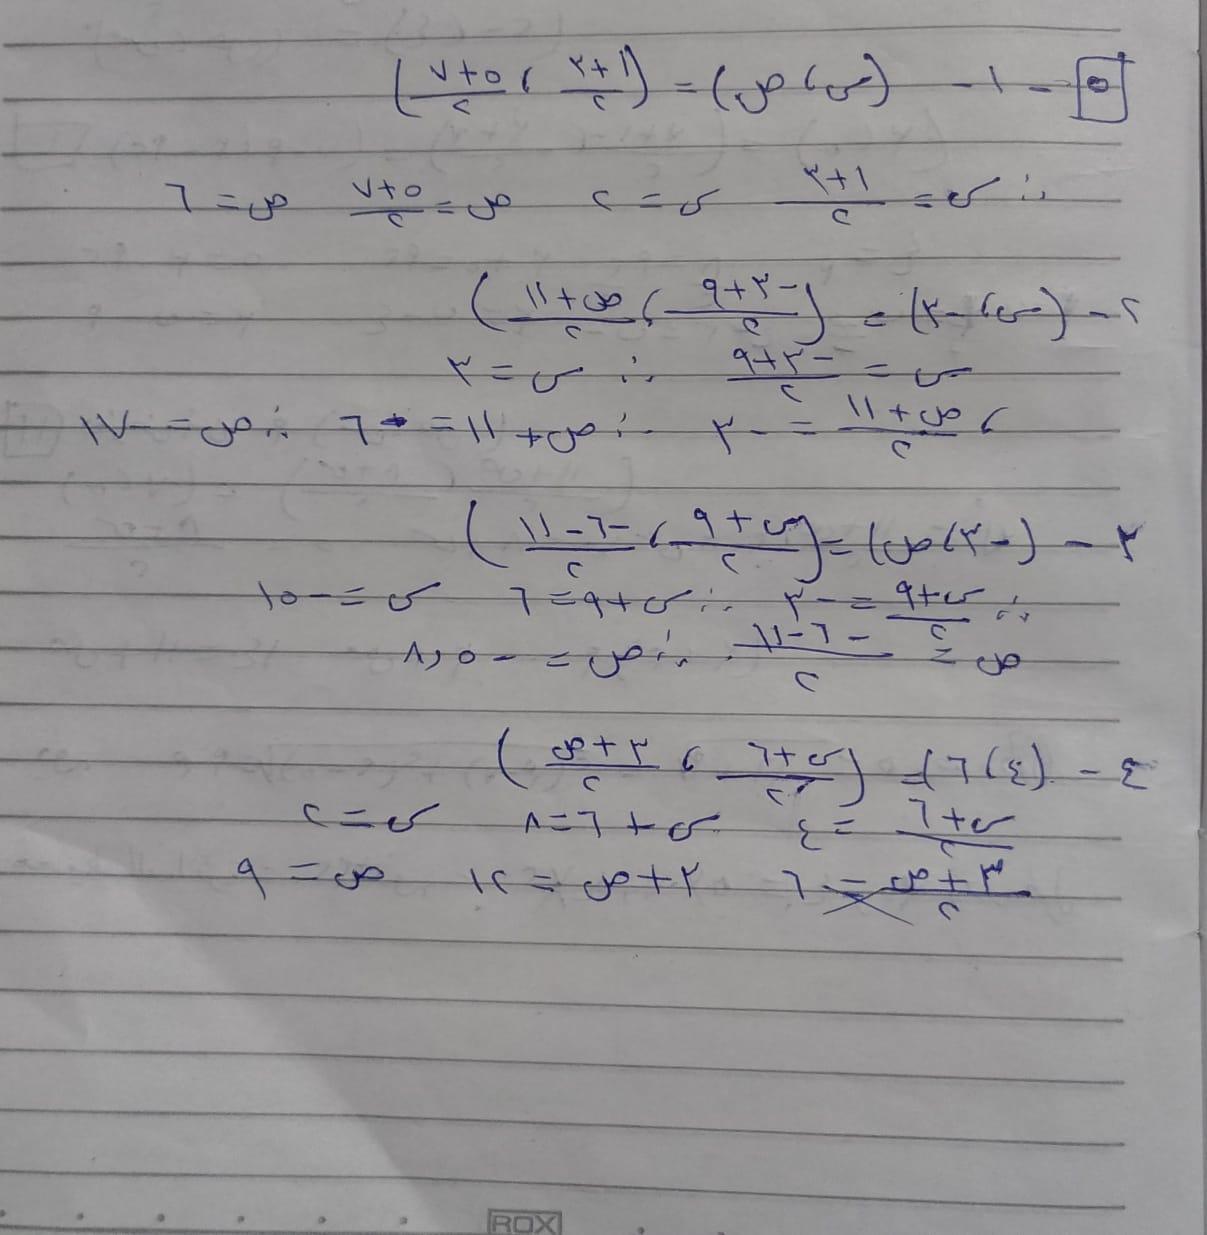 ٥ - ١ - (س ، ص) = (١+٣/٢ ، ٥+٧/٢)
∴ س = ١+٣/٢ س = ٢ ص = ٥+٧/٢ ص = ٦
٢ - (س ، -٣) = (-٣+٩/٢ ، ص+١١/٢)
س = -٣+٩/٢ ∴ س = ٣
، ص+١١/٢ = -٣ ∴ ص+١١ = -٦ ∴ ص = -١٧
٣ - (-٣ ، ص) = (س+٩/٢ ، -٦-١١/٢)
∴ س+٩/٢ = -٣ ∴ س+٩ = ٦ س = -١٥
ص = -٦-١١/٢ ∴ ص = -٨,٥
٤ - (٤ ، ٦) = (س+٦/٢ ، ٣+ص/٢)
س+٦/٢ = ٤ س+٦=٨ س = ٢
٣+ص/٢ = ٦ ٣+ص = ١٢ ص = ٩
ROX